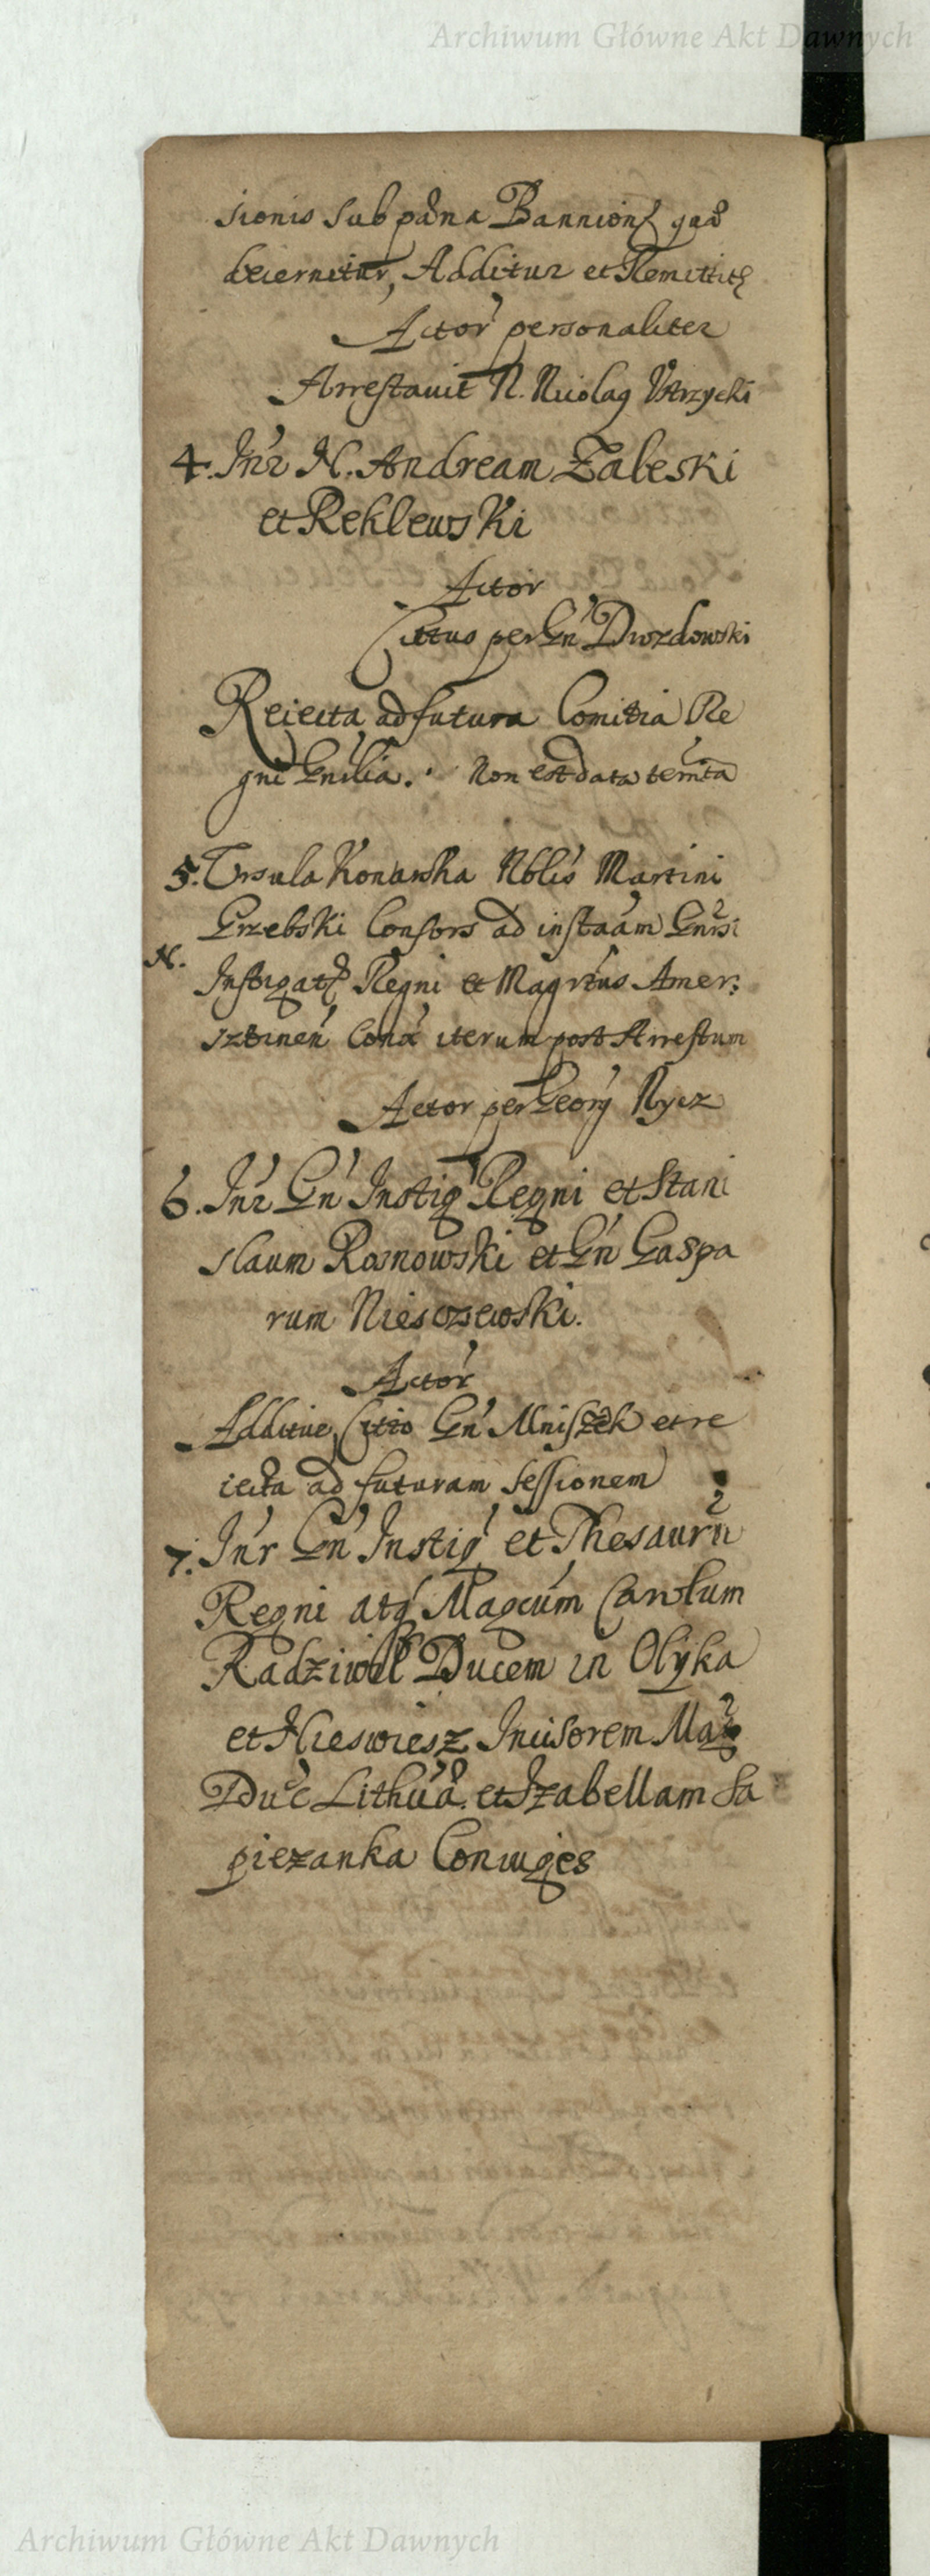 Archiwum Główne Akt Dawnych
sionis sub pæna Bannionis quæ
decernitur, Additur et Remittit
Actor personaliter
Arrestavit N. Nicolaq Ustrzycki
4. Intr N. Andream Zaleski
et Reklewski
Actor
Cittus per Gn Drozdowski
Reiecta ad futura Comitia Re
gni Gnilia. Non est data termta
5. Ursula Konarska Nblis Martini
Grzebski Consors ad instaam Gnrsi
N.
Instigat Regni et Magrtus Amer:
sztinen Cona iterum post Arrestum
Actor per Georg Rycz
6. Intr Gn Instig Regni et Stani
slaum Rosnowski et Gn Gaspa
rum Niesczewski.
Actor
Additue Citio Gn Mniszek et re
iecta ad futuram Sessionem
7. Intr Gn Instig et Thesauru
Regni atq Magcum Carolum
Radziwil Ducem in Olyka
et Nieswiesz Incisorem Mag
Duc Lithua. et Izabellam Sa
piezanka Coniuges
Archiwum Główne Akt Dawnych